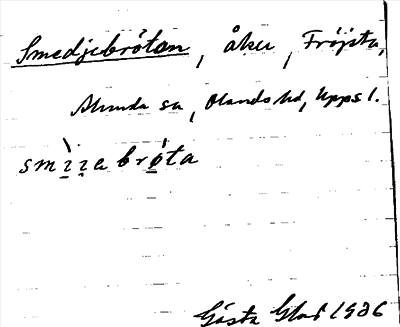 Smedjebråtan, åker, Fröjsta,
Alunda sn, Olands hd, Upps l.
smìi̯abrø̀ta
Gösta 1936